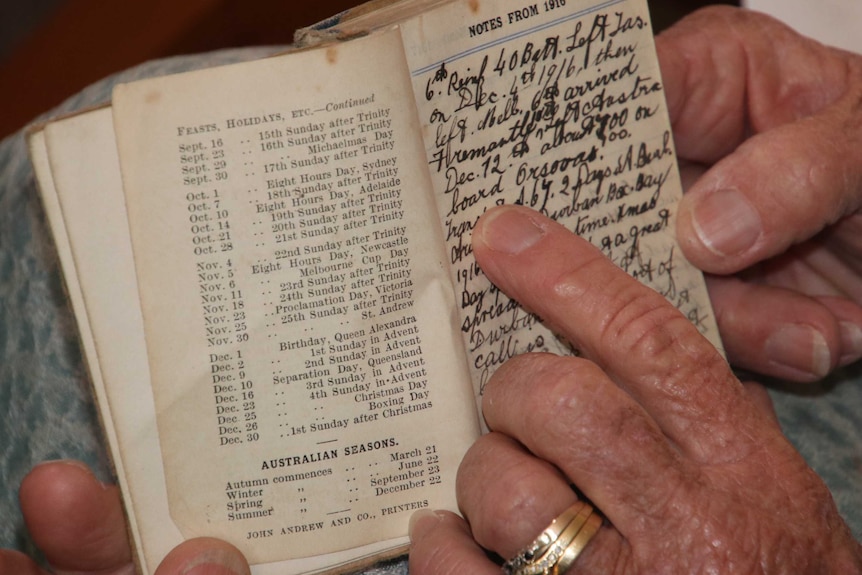 FEASTS, HOLIDAYS, ETC.—Continued
Sept. 16 .. 15th Sunday after Trinity
Sept. 23 .. 16th Sunday after Trinity
Sept. 29 .. .. Michaelmas Day
Sept. 30 .. 17th Sunday after Trinity
Oct. 1 .. Eight Hours Day, Sydney
Oct. 7 .. 18th Sunday after Trinity
Oct. 10 .. Eight Hours Day, Adelaide
Oct. 14 .. 19th Sunday after Trinity
Oct. 21 .. 20th Sunday after Trinity
Oct. 28 .. 21st Sunday after Trinity
Nov. 4 .. 22nd Sunday after Trinity
Nov. 5 Eight Hours Day, Newcastle
Nov. 6 .. Melbourne Cup Day
Nov. 11 .. 23rd Sunday after Trinity
Nov. 18 .. 24th Sunday after Trinity
Nov. 23 Proclamation Day, Victoria
Nov. 25 .. 25th Sunday after Trinity
Nov. 30 .. .. St. Andrew
Dec. 1 Birthday, Queen Alexandra
Dec. 2 .. 1st Sunday in Advent
Dec. 9 .. 2nd Sunday in Advent
Dec. 10 Separation Day, Queensland
Dec. 16 .. 3rd Sunday in Advent
Dec. 23 .. 4th Sunday in Advent
Dec. 25 .. .. Christmas Day
Dec. 26 .. .. Boxing Day
Dec. 30 ..1st Sunday after Christmas
AUSTRALIAN SEASONS.
Autumn commences .. .. March 21
Winter „ .. .. June 22
Spring „ .. September 23
Summer „ .. December 22
JOHN ANDREW AND CO., PRINTERS
NOTES FROM 1916
6th Reinf 40 Batt. Left Tas.
on Dec. 4th 1916, then
left Melb. 6th arrived
Fremantle left Austra
Dec. 12th about 700 on
board
2 Days
Durban Box. Day
1916 time. Xmas
Day a great
spread lot of
Durban
call